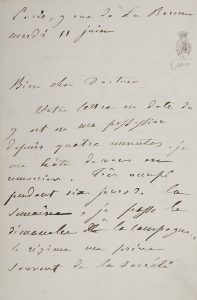 Paris, 9 rue de La Baume
mardi 11 juin
(1889)
Bien cher Docteur,
Votre lettre en date du
9 est en ma possession
depuis quatre minutes, je
me hâte de vous en
remercier. Très occupé
pendant six jours de la
semaine, je passe le
dimanche à la campagne.
Ce régime me prive
souvent de la société